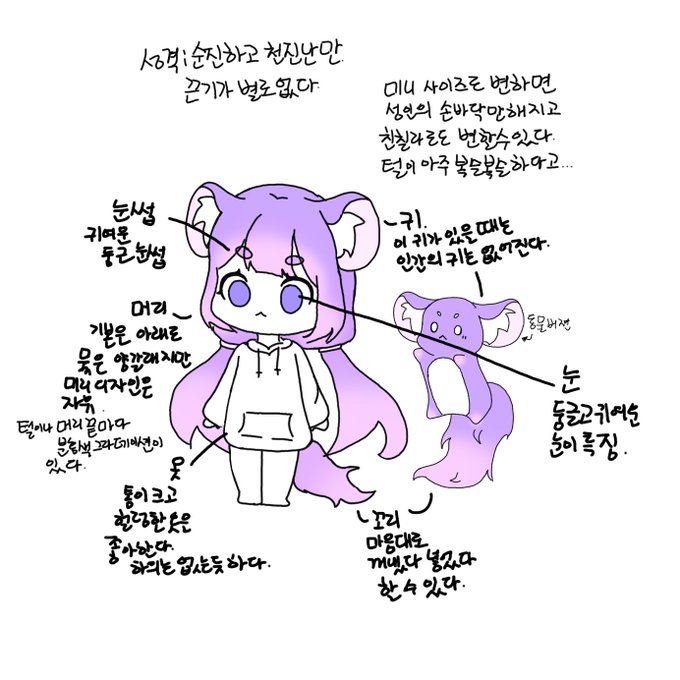 성격: 순진하고 천진난만
끈기가 별로 없다.
미니 사이즈로 변하면
성인의 손바닥만해지고
친칠라로도 변할수있다.
털이 아주 복슬복슬하다고...
눈썹
귀여운
둥근눈썹
귀.
이 귀가 있을때는
인간의 귀는 없어진다.
동물버젼
머리
기본은 아래로
묶은 양갈래지만
머리디자인은
자유.
털이나 머리끝마다
분홍색 그라데이션이
있다.
눈
둥글고귀여운
눈이 특징.
옷
통이크고
헐렁한옷은
좋아한다.
하의는 없는듯하다.
꼬리
마음대로
꺼냈다 넣었다
할 수 있다.